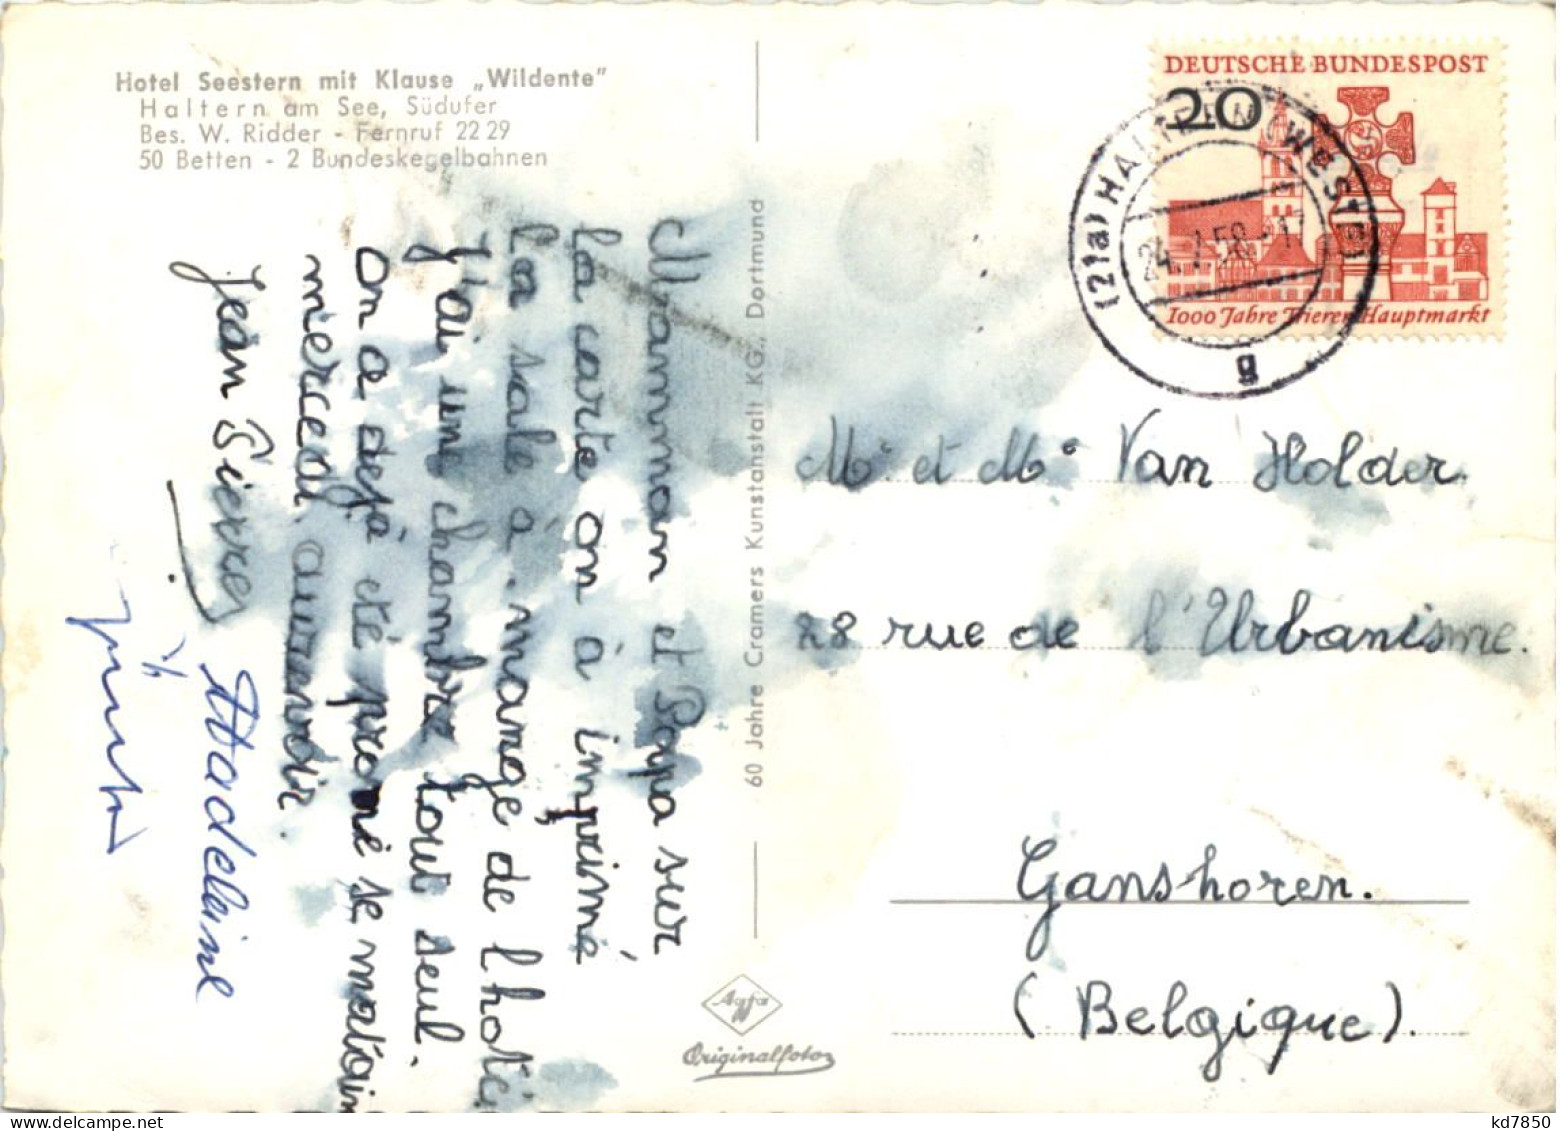 Hotel Seestern mit Klause „Wildente"
Haltern am See, Südufer
Bes. W. Ridder - Fernruf 22 29
50 Betten - 2 Bundeskegelbahnen
Mamman et Papa sur
la carte on à imprimé
la sale à mange de l'hotel
J'ai une chambre tout seul.
on a dejà eté promé se matain
merced aurevoir.
Jean Pierre
Madeleine
60 Jahre Cramers Kunstanstalt KG., Dortmund
Agfa
Originalfoto
DEUTSCHE BUNDESPOST
20
1000 Jahre Trierer Hauptmarkt
(21a) HALTERN (WESTF)
24.7.58-17
g
Mr et Me Van Holder
28 rue de l'Urbanisme.
Ganshoren.
(Belgique).
kd7850